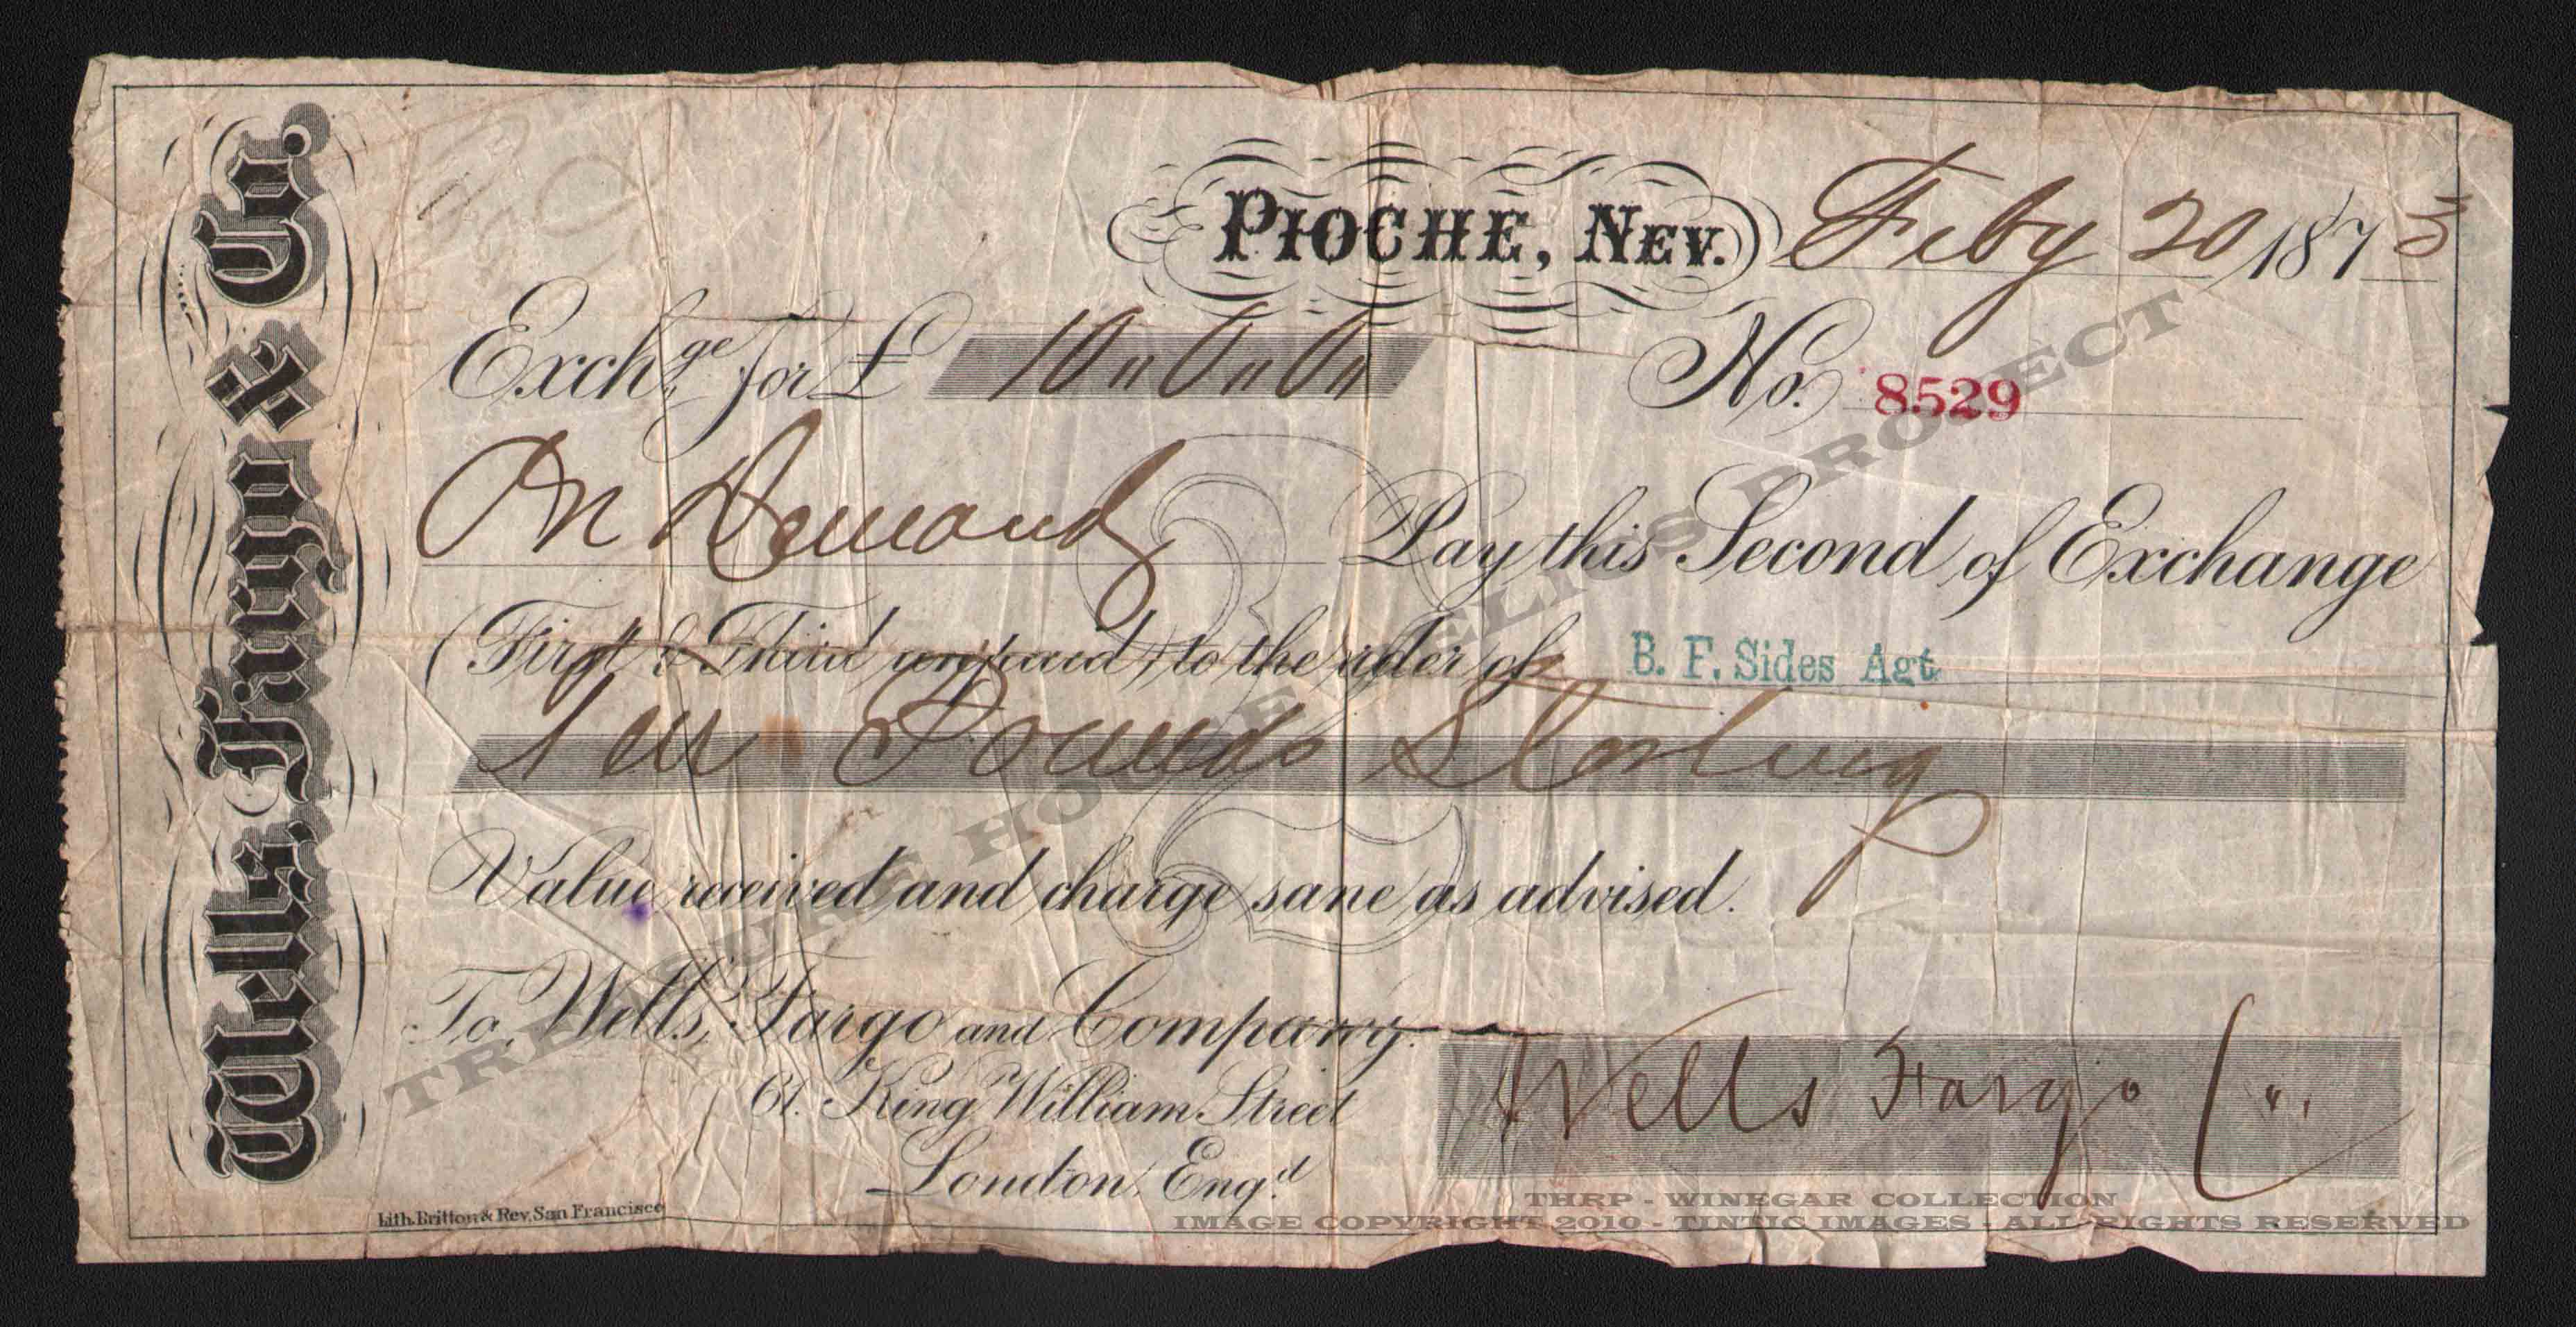 Wells, Fargo & Co.
PIOCHE, NEV. Feby 20 1873
Exchge for £ 10 " 0 " 0 " No. 8529
On Demand Pay this Second of Exchange
(First & Third unpaid) to the order of B. F. Sides Agt
Ten Pounds Sterling
Value received and charge sane as advised.
To Wells, Fargo and Company.
61. King William Street
London, Engd.
Wells Fargo Co.
Lith. Britton & Rey, San Francisco
2
TREASURE HOUSE RELICS PROJECT
THRP - WINEGAR COLLECTION
IMAGE COPYRIGHT 2010 - TINTIC IMAGES - ALL RIGHTS RESERVED